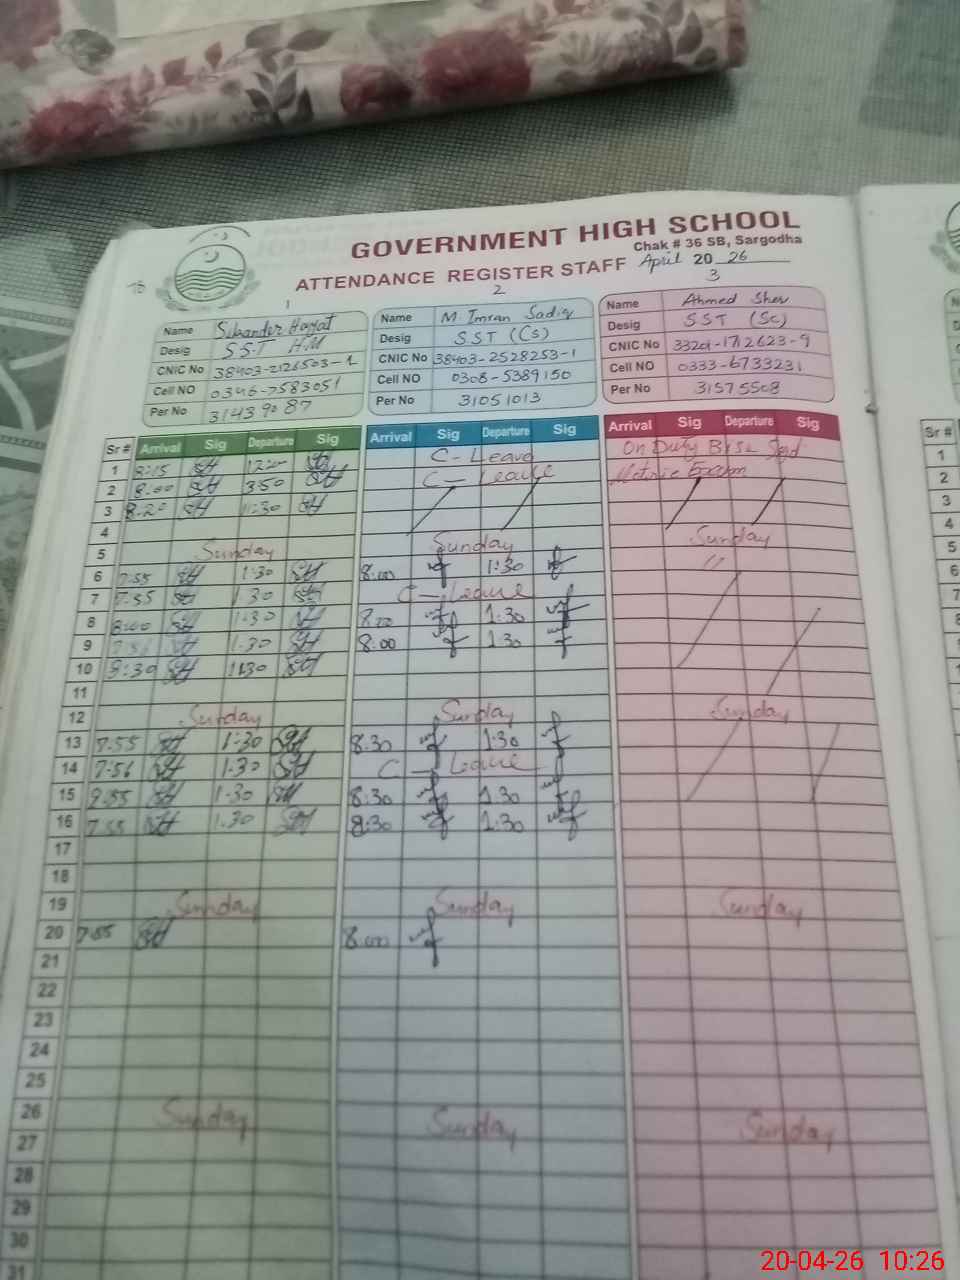 GOVERNMENT HIGH SCHOOL
Chak # 36 SB, Sargodha
ATTENDANCE REGISTER STAFF April 20 26
1 2 3
Name Sikander Hayyat
Desig SST HM
CNIC No
Cell NO 0346-7583051
Per No 31439087
Name M Imran Sadiq
Desig SST (CS)
CNIC No 38403-2528253-1
Cell NO 0308-5389150
Per No 31051013
Name Ahmed Sher
Desig SST (Sc)
CNIC No 33201-1712623-9
Cell NO 0333-6733231
Per No 31575508
Sr # Arrival Sig Departure Sig Arrival Sig Departure Sig Arrival Sig Departure Sig Sr #
1 8:15 C-Leave On Duty 1
2 8:00 3:50 C-Leave 2
3 8:20 1:30 3
4 4
5 Sunday Sunday Sunday 5
6 7:55 1:30 8:00 1:30 " 6
7 7:55 1:30 C-Leave 7
8 8:00 1:30 1:30 8
9 1:30 8:00 1:30 9
10 1:30
11
12 Sunday Sunday Sunday
13 7:55 1:30 8:30 1:30
14 7:56 1:30 C-Leave
15 1:30 8:30 1:30
16 7:55 1:30 8:30 1:30
17
18
19 Sunday Sunday Sunday
20 7:55 8:00
21
22
23
24
25
26 Sunday Sunday Sunday
27
28
29
30
31
20-04-26 10:26